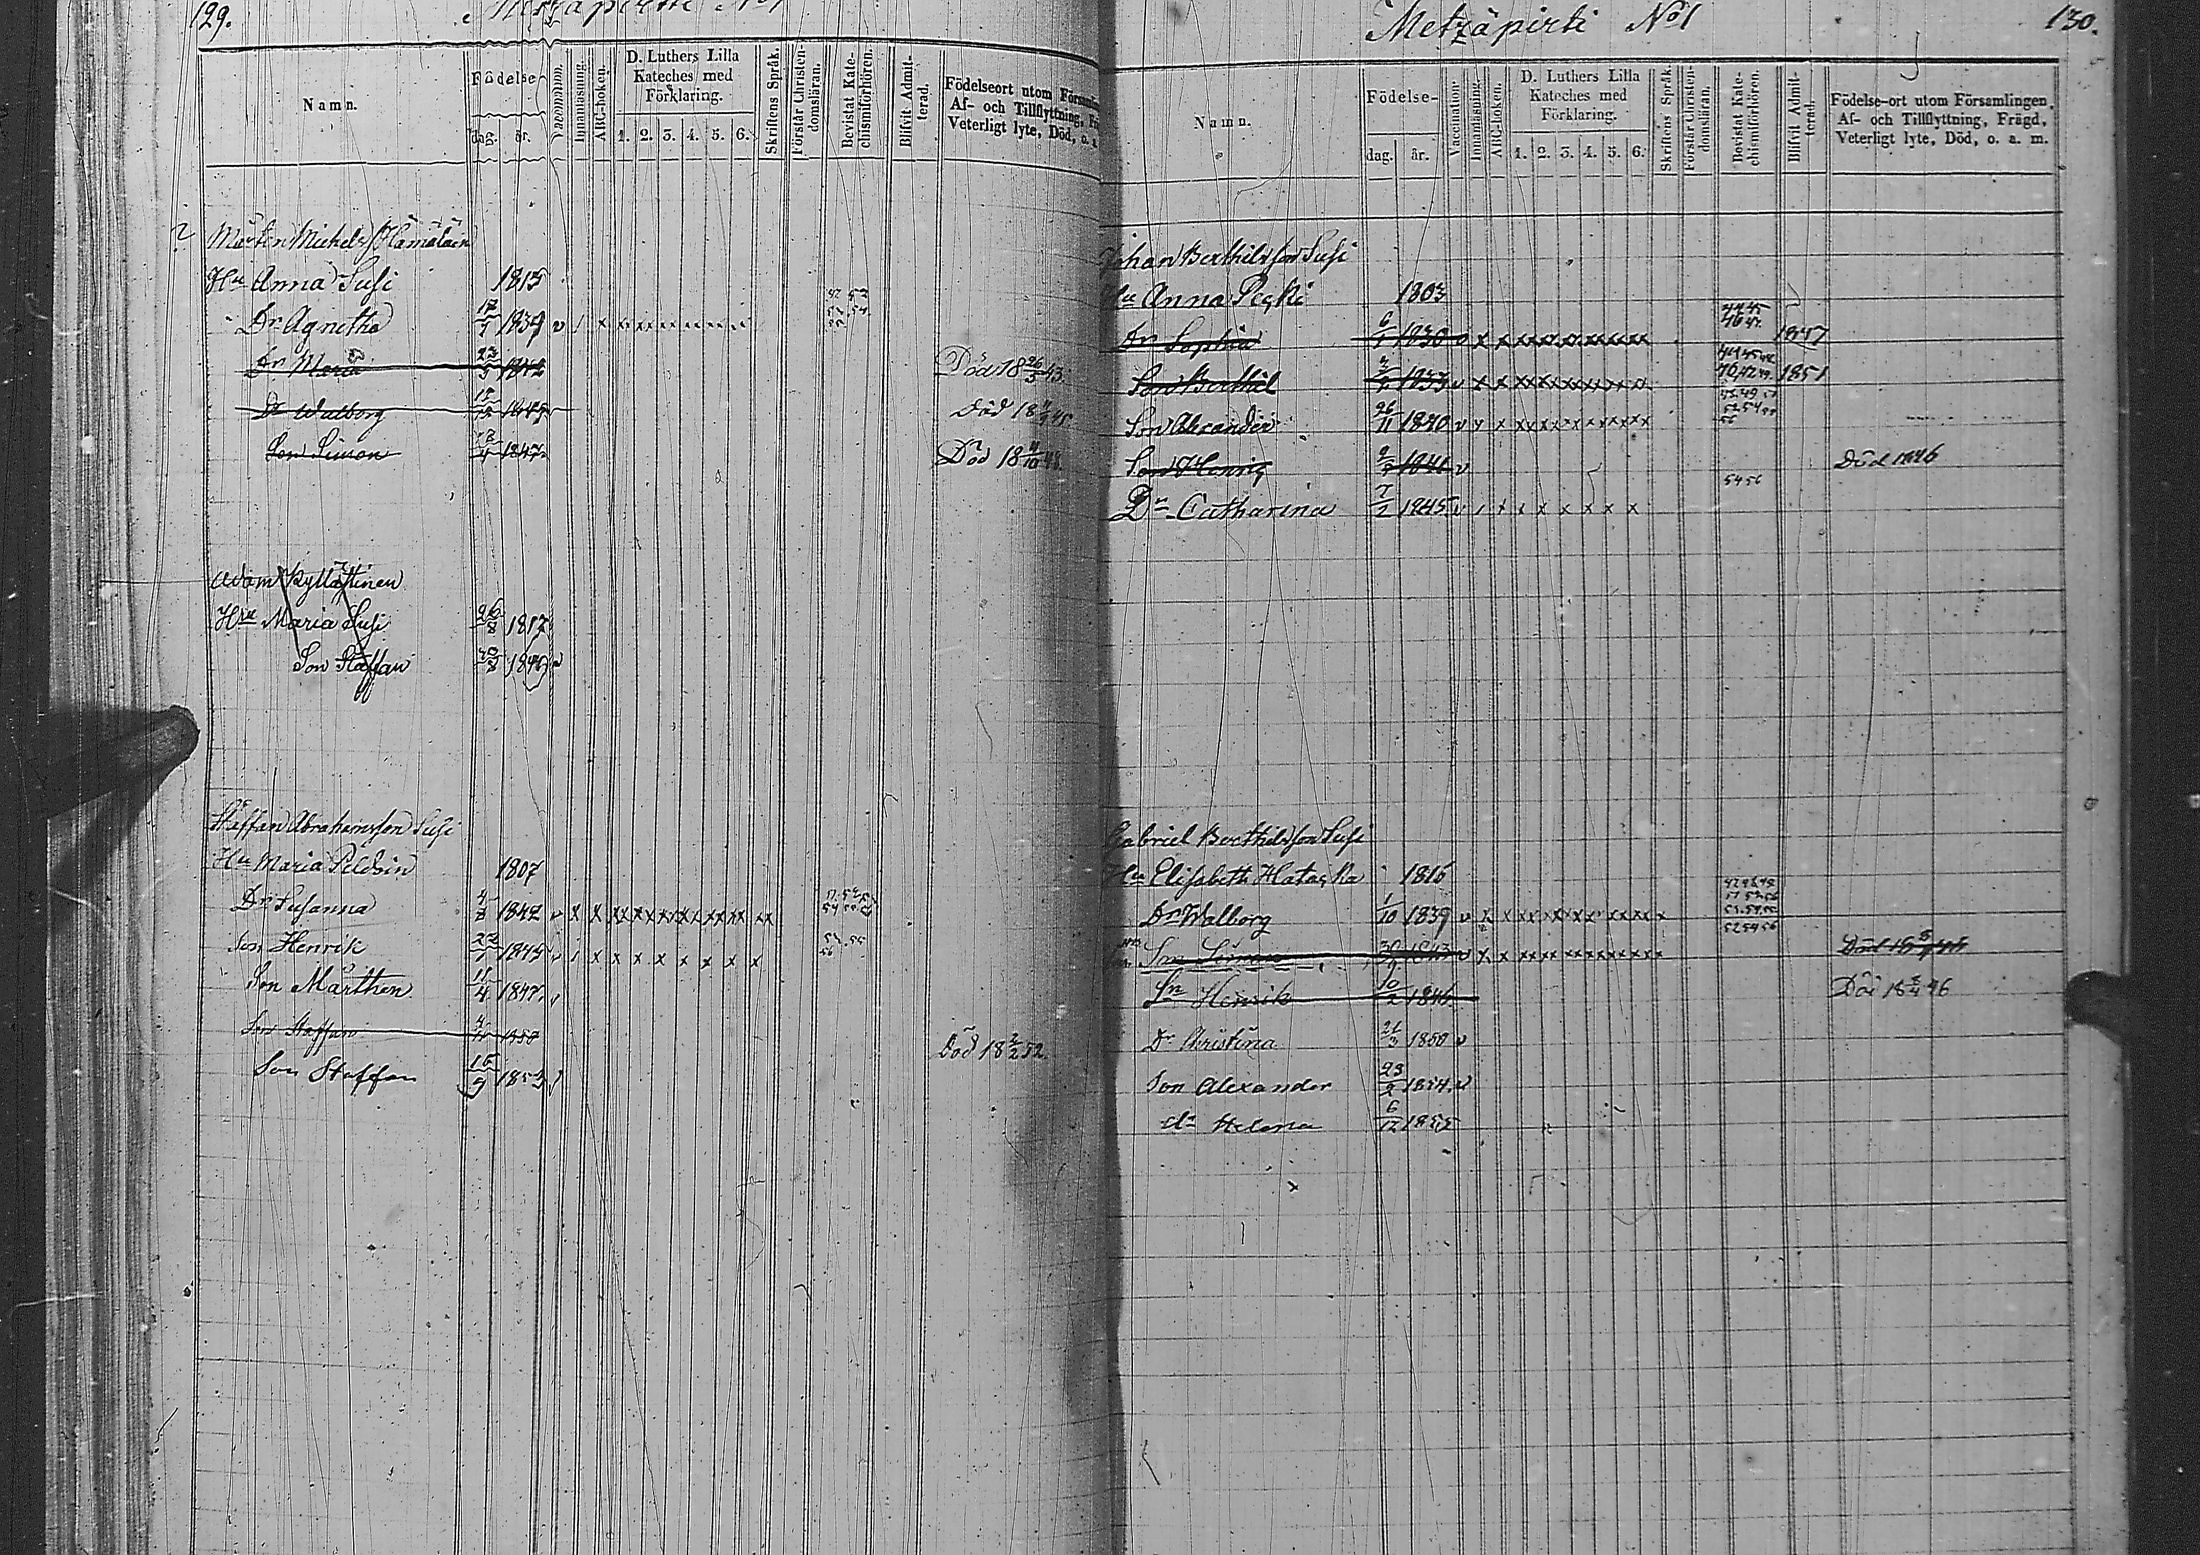 129.
Metzäpirtti No 1
Namn.
Födelse-
dag. år.
Vaccination.
Innanläsning.
ABC-boken.
D. Luthers Lilla
Kateches med
Förklaring.
1. 2. 3. 4. 5. 6.
Skriftens Språk.
Förstår Christen-
domsläran.
Bevistat Kate-
chismiförhören.
Blifvit Admit-
terad.
Födelseort utom Försam
Af- och Tillflyttning,
Veterligt lyte, Död, o. a.
Mårten Michelss. Hämäläin
Hu Anna Susi 1815
Dr Agnetha 1839 v
Dr Maria 23/5 1842 Död 18 26/5 43.
Dr Walborg 1845 Död 18 45
Son Simon 1847 Död 18 11/10 48.
Adam Kyllästinen
Hru Maria Susi 26/8 1817
Son Staffan 1840 v
Staffan Abrahamsson Susi
Hu Maria Peldsin 1807
Dr Susanna 1842 v x x x x x x x x x x x
Son Henrik 1845 x x x x x x x x
Son Mårthen 11/4 1847
Son Staffan 1850 Död 18 2/2 52.
Son Staffan 15/9 1853
130.
Metzäpirti No 1
Namn.
Födelse-
dag. år.
Vaccination.
Innanläsning.
ABC-boken.
D. Luthers Lilla
Kateches med
Förklaring.
1. 2. 3. 4. 5. 6.
Skriftens Språk.
Förstår Christen-
domsläran.
Bevistat Kate-
chismiförhören.
Blifvit Admit-
terad.
Födelse-ort utom Församlingen.
Af- och Tillflyttning, Frägd,
Veterligt lyte, Död, o. a. m.
Johan Berthilsson Susi
Hu Anna Peski 1803
Dr Sophia 6/1 1830 1847
Son Berthil 1833 v 1851
Son Alexander 26/11 1840 v
Son Henric 1841 v Död 1846
Dr Catharina 7/2 1845 v
Gabriel Berthilsson Susi
Hu Elisabeth Hatacka 1816
Dr Walborg 1/10 1839 v
Son Simon 1843 v
Sn Henrik 10/2 1846 Död 18 46
Dr Christina 21/3 1850 v
Son Alexander 23/2 1854 v
dr Helena 6/12 1855